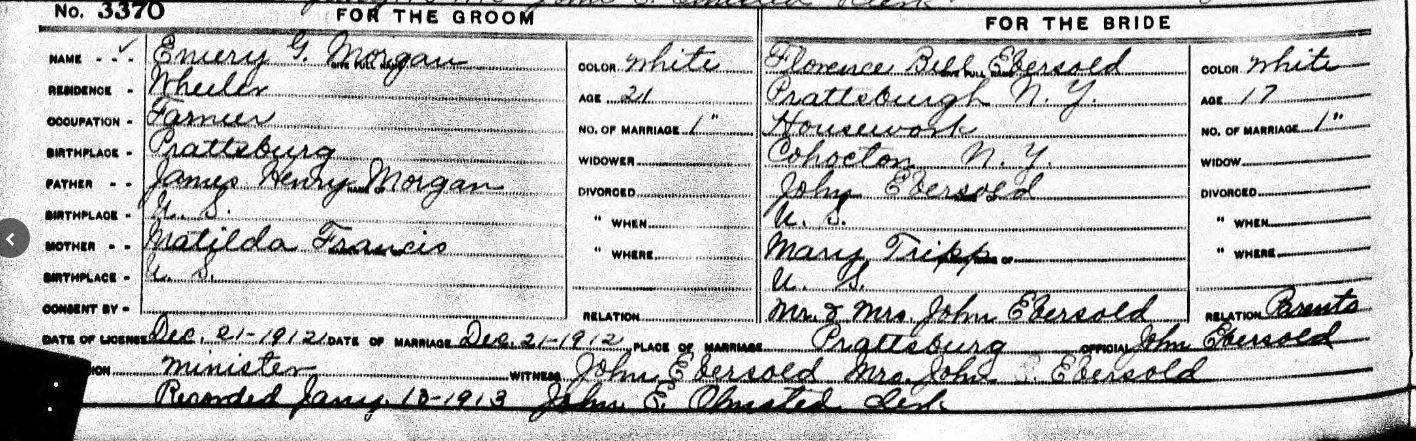 No. 3370 FOR THE GROOM FOR THE BRIDE
NAME - - - ✓ Emery G. Morgan COLOR White Florence Bell Ebersold COLOR White
RESIDENCE - Wheeler AGE 21 Prattsburgh N.Y. AGE 17
OCCUPATION - Farmer NO. OF MARRIAGE 1" Housework NO. OF MARRIAGE 1"
BIRTHPLACE - Prattsburg WIDOWER Cohocton N.Y. WIDOW
FATHER - - James Henry Morgan DIVORCED John Ebersold DIVORCED
BIRTHPLACE - U. S. " WHEN U. S. " WHEN
MOTHER - - Matilda Francis " WHERE Mary Tripp " WHERE
BIRTHPLACE - U. S. U. S.
CONSENT BY - RELATION Mr. & Mrs. John Ebersold RELATION Parents
DATE OF LICENSE Dec. 21-1912 DATE OF MARRIAGE Dec. 21-1912 PLACE OF MARRIAGE Prattsburg OFFICIAL John Ebersold
ION Minister WITNESS John Ebersold Mrs. John Ebersold
Recorded Jany. 10-1913 John E. Olmsted Clerk